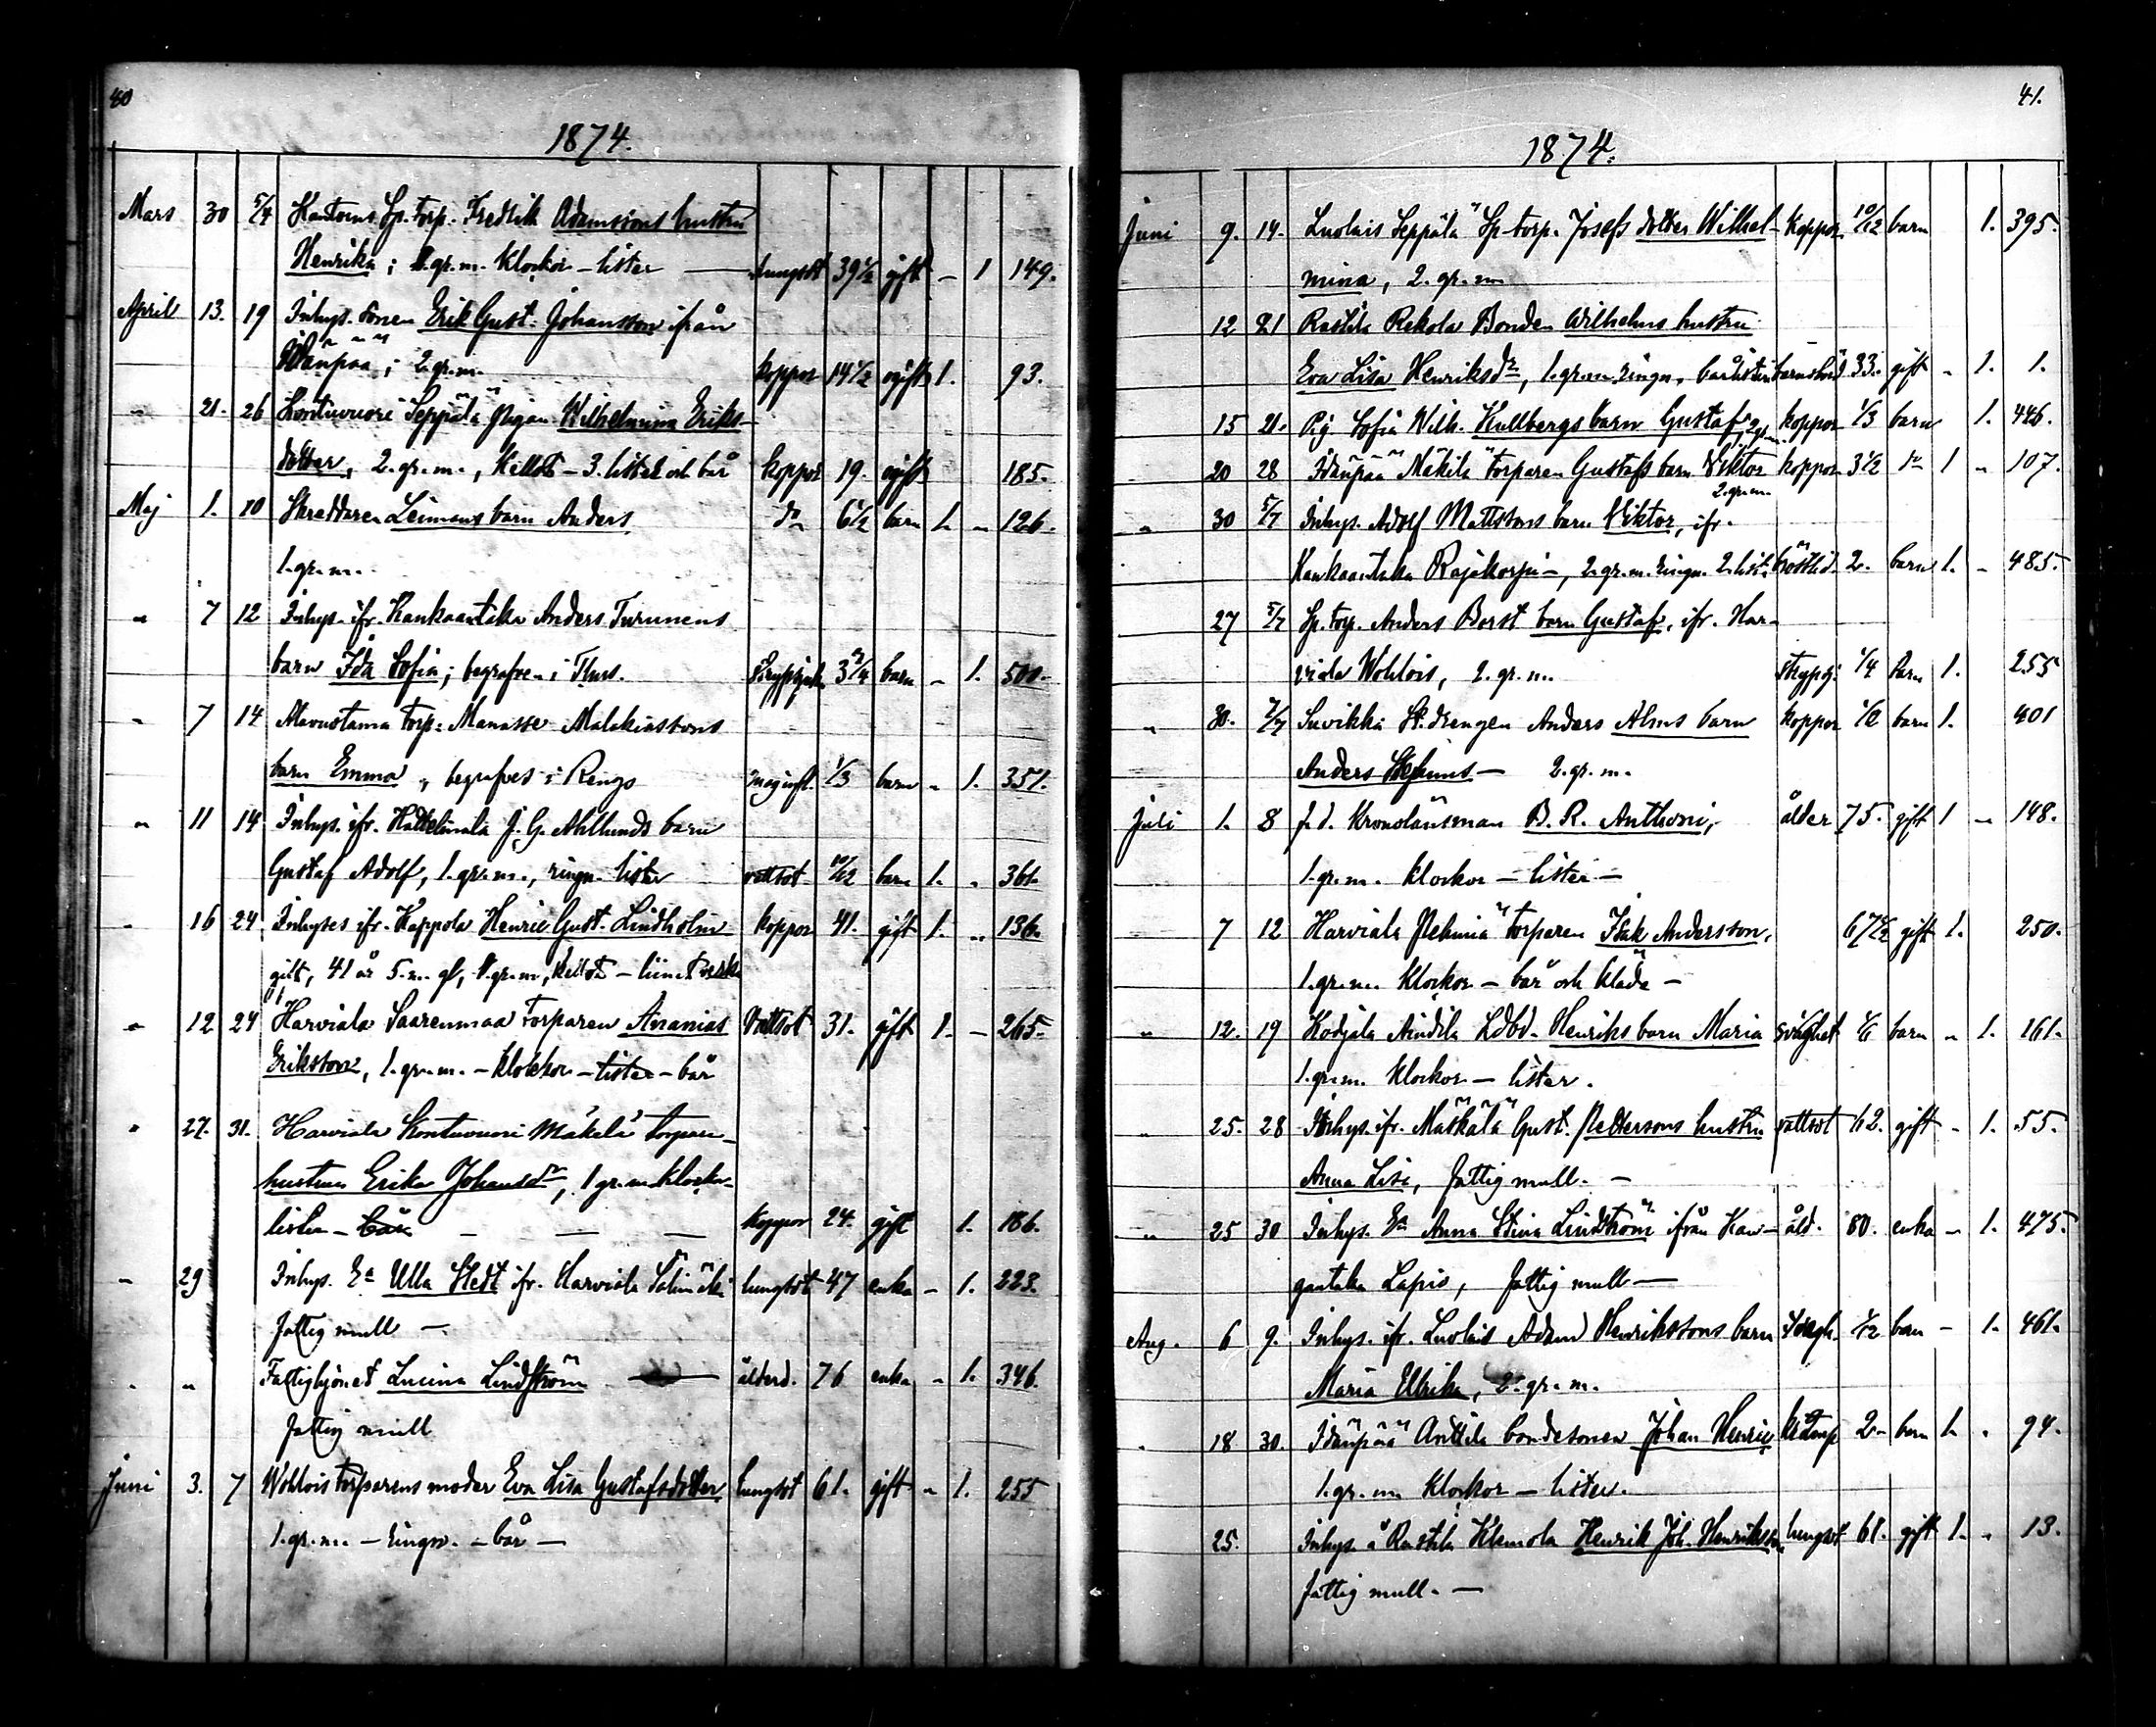 40
1874.
Mars 30 5/4 Kantorns Sp. torp. Fredrik Adamssons hustru
Henrika; 2.gr.m. Klockor - lister — lungsot 39 1/2 gift - 1 149.
April 13. 19 Inhys. sonen Erik Gust. Johansson ifrån
Idänpää; 2.gr.m. koppor 14 1/2 ogift 1. 93.
" 21. 26 Kontuvuori Seppälä pigan Wilhelmina Eriks-
dotter, 2.gr.m., - 3. lister och bår koppor 19. ogift 185.
Maj 1. 10 Skreddaren Leimans barn Anders do 6 1/2 barn 1. - 126.
1.gr.m.
" 7 12 Inhys. ifr. Kankaantaka Anders Turunens
barn Ida Sofia; begrafven i Thus. strypsjuk 3 3/4 barn - 1. 501.
" 7 14 Alavustama torp. Manasse Malakiassons
barn Emma „ begrafves i Rengo 1/3 barn - 1. 351.
" 11 14 Inhys. ifr. Hattelmala J. G. Ahllunds barn
Gustaf Adolf, 1.gr.m., ringn. lister vattsot 10/12 barn 1. - 361.
" 16 24 Inhyses ifr. Kappola Henric Gust. Lindholm koppor 41. gift 1. " 136.
gift, 41 år 5. m. gl, 1.gr.m,
" 12 24 Harviala Saarenmaa Torparen Ananias vattsot 31. gift 1. - 265.
Eriksson, 1.gr.m. - klockor - lister - bår
" 27. 31. Harviala Kontuvuori Mäkelä torpare-
hustrun Erika Johansdr, 1 gr.m. klockor-
lister - bår — — — koppor 24. gift 1. 186.
" 29 Inhys. Ea Ulla Stedt ifr. Harviala Salimäki lungsot 47 enka - 1. 223.
Fattig mull —
" " Fattighjonet Lucina Lindström ålderd. 76 enka - 1. 346.
Fattig mull
Juni 3. 7 Wohlois torparens moder Eva Lisa Gustafsdotter lungsot 61. gift - 1. 255
1.gr.m. - ringn. - bår —
41.
1874.
Juni 9. 14. Luolais Seppälä Sp torp. Josefs dotter Wilhel- koppor 10/12 barn 1. 395.
mina, 2. gr.m
12 21 Rastila Rekola Bonden Wilhelms hustru
Eva Lisa Henriksdr, 1.gr.m. ringn. barnsbörd 33. gift - 1. 1.
15 21. Pig. Sofia Wilh. Kullbergs barn Gustaf, 2 gr.m. koppor 1/3 barn 1. 446.
20 28 Idänpää Mäkilä torparen Gustafs barn Viktor koppor 3 1/2 do 1 - 107.
2.gr.m.
" 30 5/7 Inhys. Adolf Mattssons barn Viktor, ifr.
Kankaantaka Rajakorpi -, 2.gr.m. ringn. 2. list. bröstlid. 2. barn 1. - 485.
27 5/7 Sp. torp. Anders Borst barn Gustaf, ifr. Har-
viala Wohlois, 2. gr.m. strypsj. 1/4 barn 1. 255
" 30. 5/7 Suvikki St. drengen Anders Alms barn koppor 1/2 barn 1. 401
Anders Stefanus — 2.gr.m.
Juli 1. 8 f.d. Kronolänsman B. R. Anthoni, ålder 75. gift 1 - 148.
1.gr.m. klockor - lister —
" 7 12 Harviala Nehmiä torparen Isak Andersson, 67 gift 1. 250.
1.gr.m. Klockor - bår och kläde -
" 12. 19 Kodjala Aindila Ldbd. Henriks barn Maria svaghet barn " 1. 161.
1.gr.m. Klockor — lister.
" 25. 28 Inhys. ifr. Mäskälä Gust. Pettersons hustru vattsot 62. gift - 1. 55.
Anna Lisa, Fattig mull. —
" 25 30 Inhys. Ea Anna Stina Lindström ifrån Kan- åld. 80. enka - 1. 475.
gantaka Lapis, fattig mull —
Aug. 6 9. Inhys. ifr. Luolais Adam Henrikssons barn 1/12 barn - 1. 461.
Maria Ulrika, 2.gr.m.
" 18 30. Idänpää Anttila bondesonen Johan Henric 2 - barn 1. " 94.
1.gr.m Klockor — lister.
25. Inhys. å Rastila Klemola Henrik Joh. Henriksson lungsot 61. gift 1. " 13.
fattig mull. —